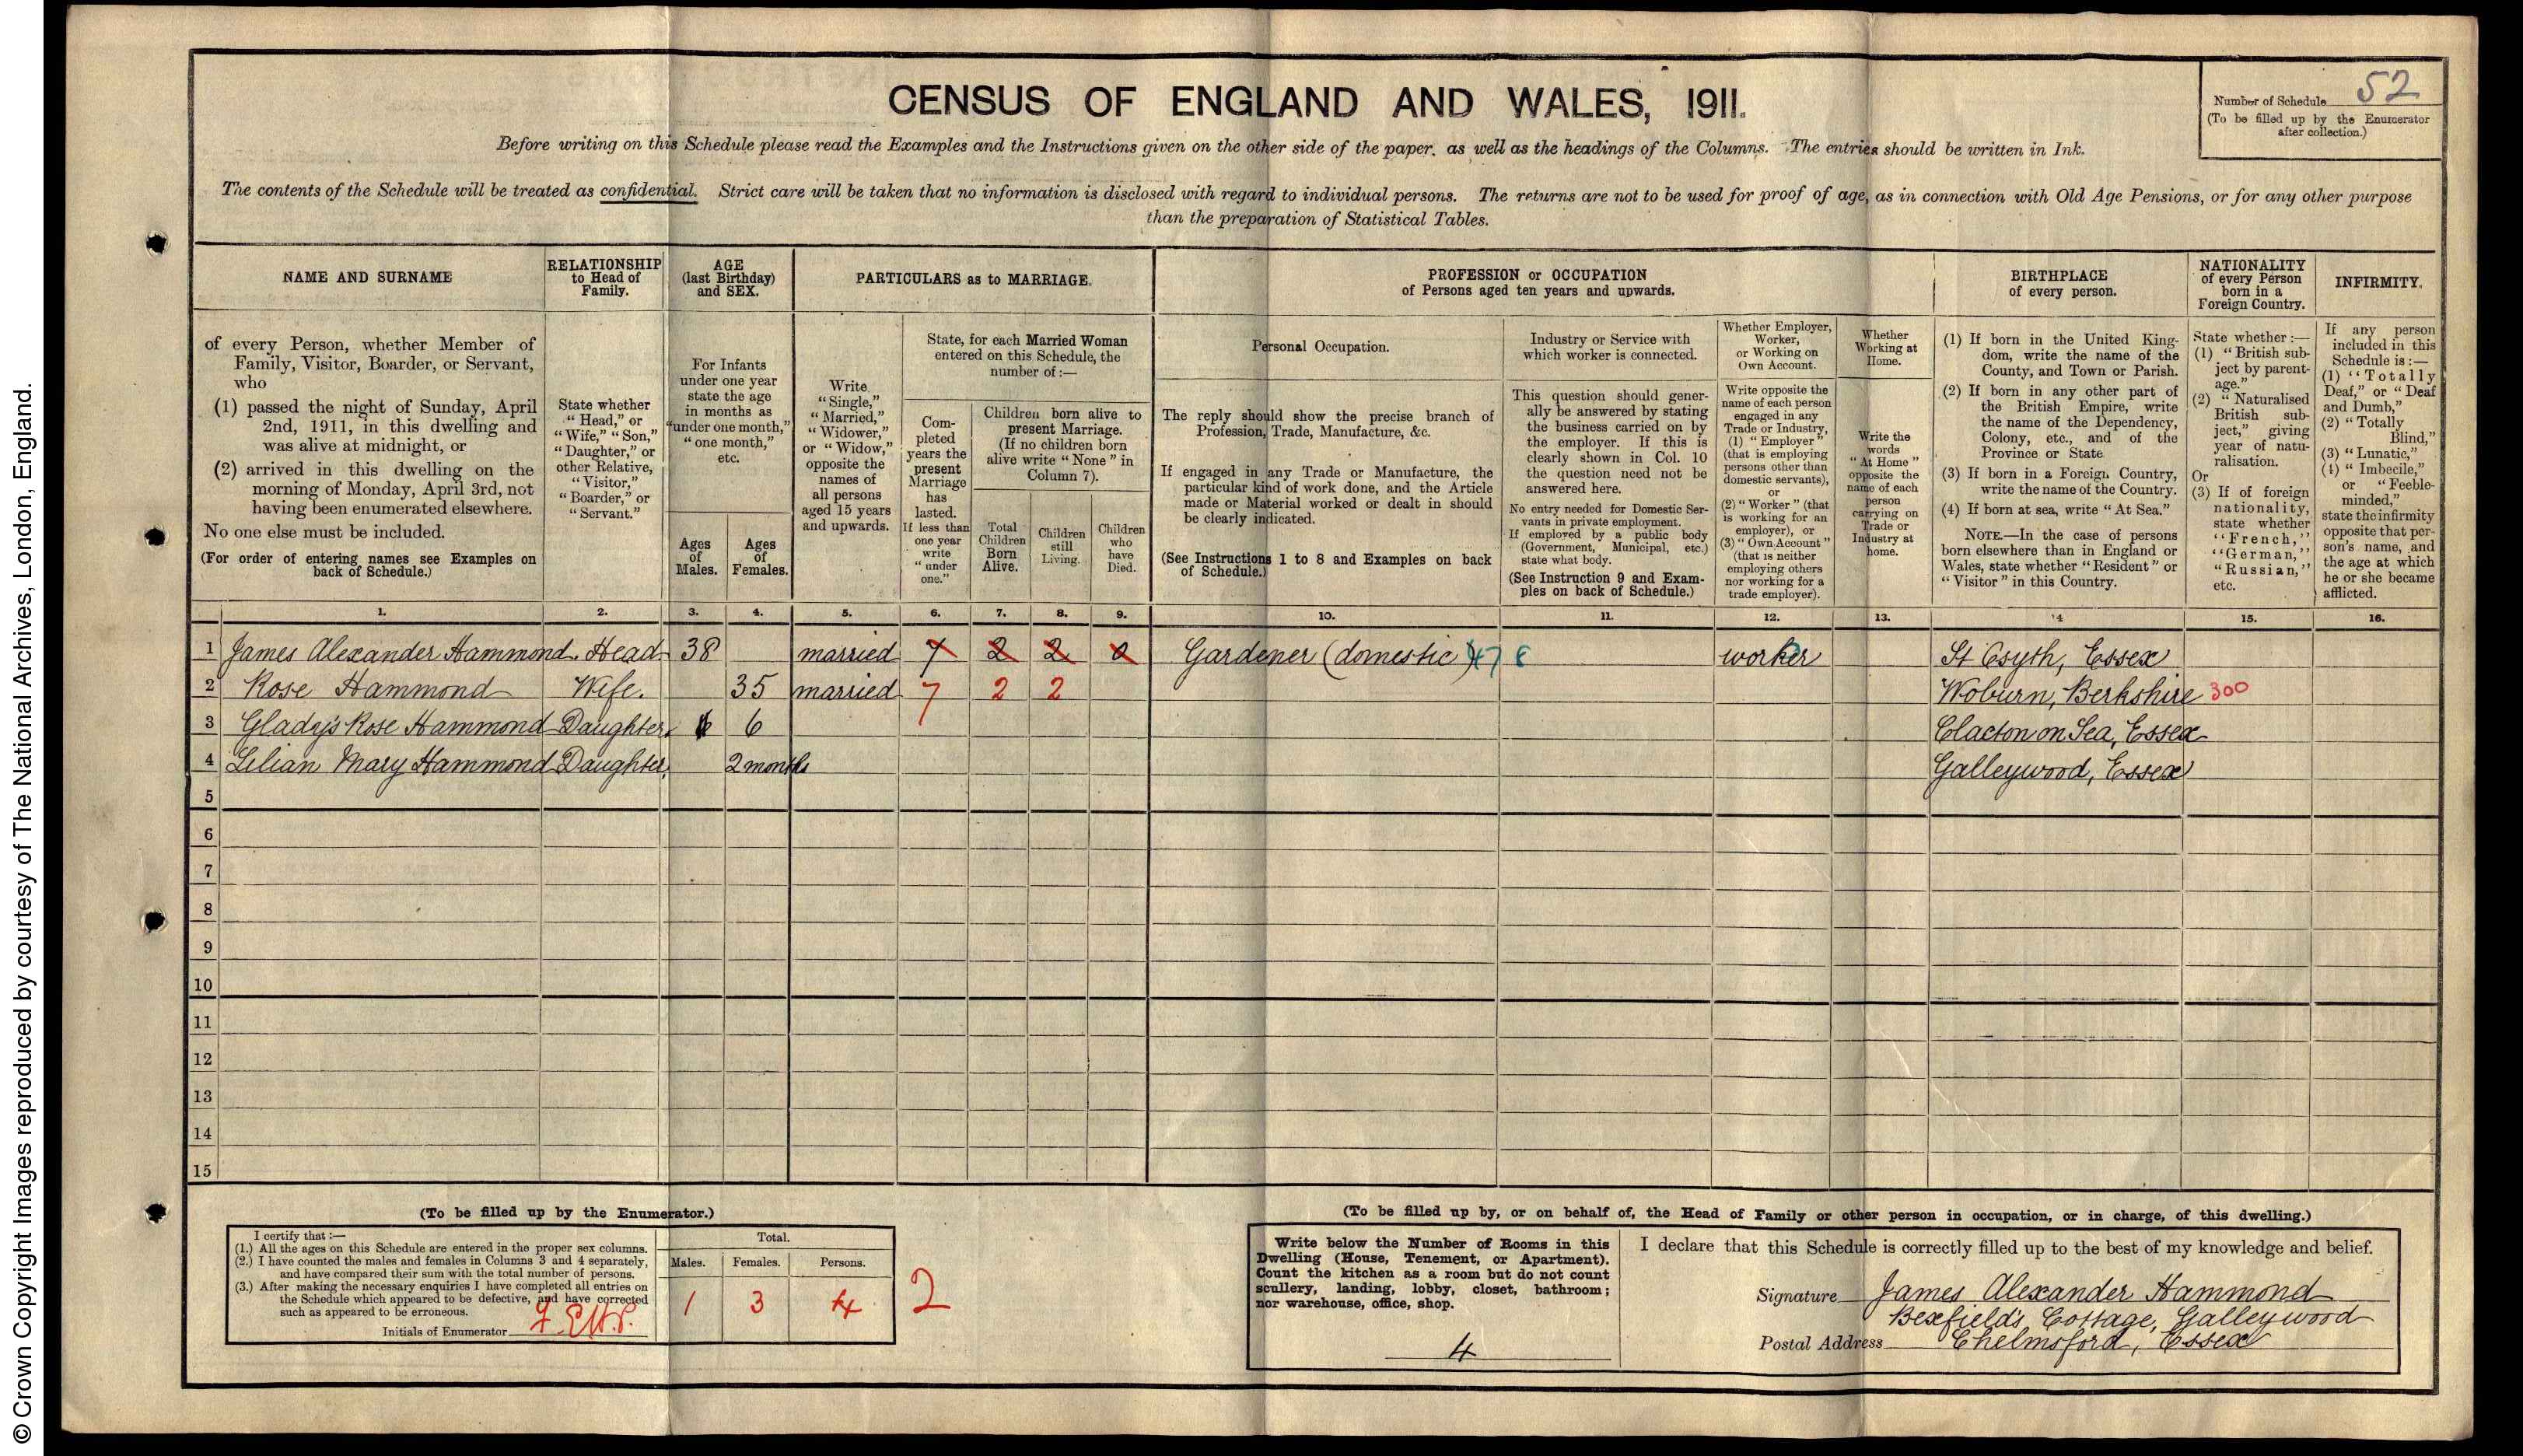 © Crown Copyright Images reproduced by courtesy of The National Archives, London, England.
CENSUS OF ENGLAND AND WALES, 1911.
Number of Schedule 52
(To be filled up by the Enumerator
after collection.)
Before writing on this Schedule please read the Examples and the Instructions given on the other side of the paper, as well as the headings of the Columns. The entries should be written in Ink.
The contents of the Schedule will be treated as confidential. Strict care will be taken that no information is disclosed with regard to individual persons. The returns are not to be used for proof of age, as in connection with Old Age Pensions, or for any other purpose
than the preparation of Statistical Tables.
NAME AND SURNAME
of every Person, whether Member of
Family, Visitor, Boarder, or Servant,
who
(1) passed the night of Sunday, April
2nd, 1911, in this dwelling and
was alive at midnight, or
(2) arrived in this dwelling on the
morning of Monday, April 3rd, not
having been enumerated elsewhere.
No one else must be included.
(For order of entering names see Examples on
back of Schedule.)
RELATIONSHIP
to Head of
Family.
State whether
"Head," or
"Wife," "Son,"
"Daughter," or
other Relative,
"Visitor,"
"Boarder," or
"Servant."
AGE
(last Birthday)
and SEX.
For Infants
under one year
state the age
in months as
"under one month,"
"one month,"
etc.
Ages
of
Males.
Ages
of
Females.
PARTICULARS as to MARRIAGE.
Write
"Single,"
"Married,"
"Widower,"
or "Widow,"
opposite the
names of
all persons
aged 15 years
and upwards.
State, for each Married Woman
entered on this Schedule, the
number of:—
Com-
pleted
years the
present
Marriage
has
lasted.
If less than
one year
write
"under
one."
Children born alive to
present Marriage.
(If no children born
alive write "None" in
Column 7).
Total
Children
Born
Alive.
Children
still
Living.
Children
who
have
Died.
PROFESSION or OCCUPATION
of Persons aged ten years and upwards.
Personal Occupation.
The reply should show the precise branch of
Profession, Trade, Manufacture, &c.
If engaged in any Trade or Manufacture, the
particular kind of work done, and the Article
made or Material worked or dealt in should
be clearly indicated.
(See Instructions 1 to 8 and Examples on back
of Schedule.)
Industry or Service with
which worker is connected.
This question should gener-
ally be answered by stating
the business carried on by
the employer. If this is
clearly shown in Col. 10
the question need not be
answered here.
No entry needed for Domestic Ser-
vants in private employment.
If employed by a public body
(Government, Municipal, etc.)
state what body.
(See Instruction 9 and Exam-
ples on back of Schedule.)
Whether Employer,
Worker,
or Working on
Own Account.
Write opposite the
name of each person
engaged in any
Trade or Industry,
(1) "Employer"
(that is employing
persons other than
domestic servants),
or
(2) "Worker" (that
is working for an
employer), or
(3) "Own Account"
(that is neither
employing others
nor working for a
trade employer).
Whether
Working at
Home.
Write the
words
"At Home"
opposite the
name of each
person
carrying on
Trade or
Industry at
home.
BIRTHPLACE
of every person.
(1) If born in the United King-
dom, write the name of the
County, and Town or Parish.
(2) If born in any other part of
the British Empire, write
the name of the Dependency,
Colony, etc., and of the
Province or State
(3) If born in a Foreign Country,
write the name of the Country.
(4) If born at sea, write "At Sea."
NOTE.—In the case of persons
born elsewhere than in England or
Wales, state whether "Resident" or
"Visitor" in this Country.
NATIONALITY
of every Person
born in a
Foreign Country.
State whether:—
(1) "British sub-
ject by parent-
age."
(2) "Naturalised
British sub-
ject," giving
year of natu-
ralisation.
Or
(3) If of foreign
nationality,
state whether
"French,"
"German,"
"Russian,"
etc.
INFIRMITY.
If any person
included in this
Schedule is:—
(1) "Totally
Deaf," or "Deaf
and Dumb,"
(2) "Totally
Blind,"
(3) "Lunatic,"
(4) "Imbecile,"
or "Feeble-
minded,"
state the infirmity
opposite that per-
son's name, and
the age at which
he or she became
afflicted.
1. 2. 3. 4. 5. 6. 7. 8. 9. 10. 11. 12. 13. 14 15. 16.
1 James Alexander Hammond Head 38 married 7 2 2 0 Gardener (domestic) 47 8 worker St Osyth, Essex
2 Rose Hammond Wife. 35 married 7 2 2 Woburn, Berkshire 300
3 Gladys Rose Hammond Daughter 6 Clacton on Sea, Essex
4 Lilian Mary Hammond Daughter 2 months Galleywood, Essex
5
6
7
8
9
10
11
12
13
14
15
(To be filled up by the Enumerator.)
I certify that:—
(1.) All the ages on this Schedule are entered in the proper sex columns.
(2.) I have counted the males and females in Columns 3 and 4 separately,
and have compared their sum with the total number of persons.
(3.) After making the necessary enquiries I have completed all entries on
the Schedule which appeared to be defective, and have corrected
such as appeared to be erroneous.
Initials of Enumerator
Total.
Males. Females. Persons.
1 3 4 2
(To be filled up by, or on behalf of, the Head of Family or other person in occupation, or in charge, of this dwelling.)
Write below the Number of Rooms in this
Dwelling (House, Tenement, or Apartment).
Count the kitchen as a room but do not count
scullery, landing, lobby, closet, bathroom;
nor warehouse, office, shop.
4
I declare that this Schedule is correctly filled up to the best of my knowledge and belief.
Signature James Alexander Hammond
Bexfield's Cottage, Galleywood
Postal Address Chelmsford, Essex